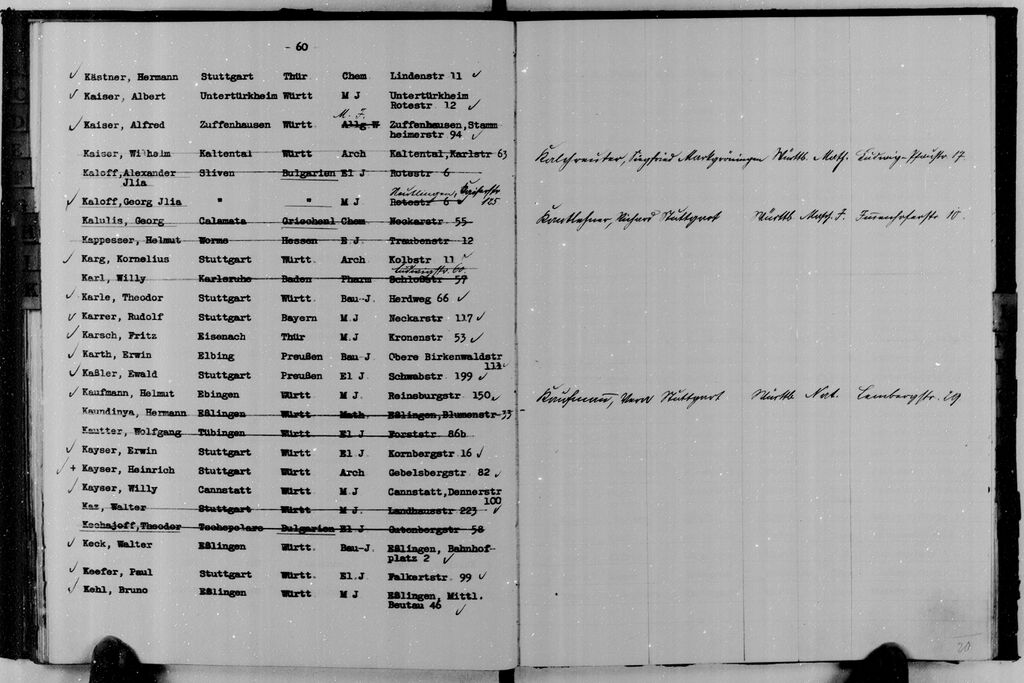 - 60
✓ Kästner, Hermann Stuttgart Thür Chem Lindenstr 11 ✓
✓ Kaiser, Albert Untertürkheim Württ M J Untertürkheim
Rotestr 12 ✓
M. J.
✓ Kaiser, Alfred Zuffenhausen Württ Allg W Zuffenhausen,Stamm
heimerstr 94 ✓
Kaiser, Wilhelm Kaltental Württ Arch Kaltental,Karlstr 63
Kaloff,Alexander Sliven Bulgarien El J Rotestr 6
Jlia
Reutlingen, Kaiserstr
✓ Kaloff,Georg Jlia " " M J Rotestr 6 ✓ 125
Kalulis, Georg Calamata Griechenl Chem Neckarstr 55
Kappesser, Helmut Worms Hessen E J. Traubenstr 12
✓ Karg, Kornelius Stuttgart Württ Arch Kolbstr 11 ✓
Ludwigstr. 60
Karl, Willy Karlsruhe Baden Pharm Schloßstr 57
✓ Karle, Theodor Stuttgart Württ. Bau-J Herdweg 66 ✓
✓ Karrer, Rudolf Stuttgart Bayern M.J Neckarstr 117 ✓
✓ Karsch, Fritz Eisenach Thür M.J Kronenstr 53 ✓
✓ Karth, Erwin Elbing Preußen Bau-J Obere Birkenwaldstr
111 ✓
✓ Kaßler, Ewald Stuttgart Preußen El J Schwabstr 199 ✓
✓ Kaufmann, Helmut Ebingen Württ M.J Reinsburgstr 150 ✓
Kaundinya, Hermann Eßlingen Württ Math. Eßlingen,Blumenstr 33
Kautter, Wolfgang Tübingen Württ El J Forststr 86b
✓ Kayser, Erwin Stuttgart Württ El J Kornbergstr 16 ✓
✓ + Kayser, Heinrich Stuttgart Württ Arch Gebelsbergstr 82 ✓
✓ Kayser, Willy Cannstatt Württ M J Cannstatt,Dennerstr
100
Kaz, Walter Stuttgart Württ M J. Landhausstr 223 ✓
Kechajoff,Theodor Tschepelare Bulgarien El J Gutenbergstr 58
✓ Keck, Walter Eßlingen Württ. Bau-J. Eßlingen, Bahnhof-
platz 2 ✓
✓ Keefer, Paul Stuttgart Württ. El.J Falkertstr 99 ✓
✓ Kehl, Bruno Eßlingen Württ M J Eßlingen, Mittl.
Beutau 46 ✓
Kalchreuter, Siegfried Markgröningen Württb. Masch. Ludwig-Pfaustr 17
Kantlehner, Richard Stuttgart Württb Masch. J.
Kaufmann, Stuttgart Württb Nat. Lembergstr. 29
20